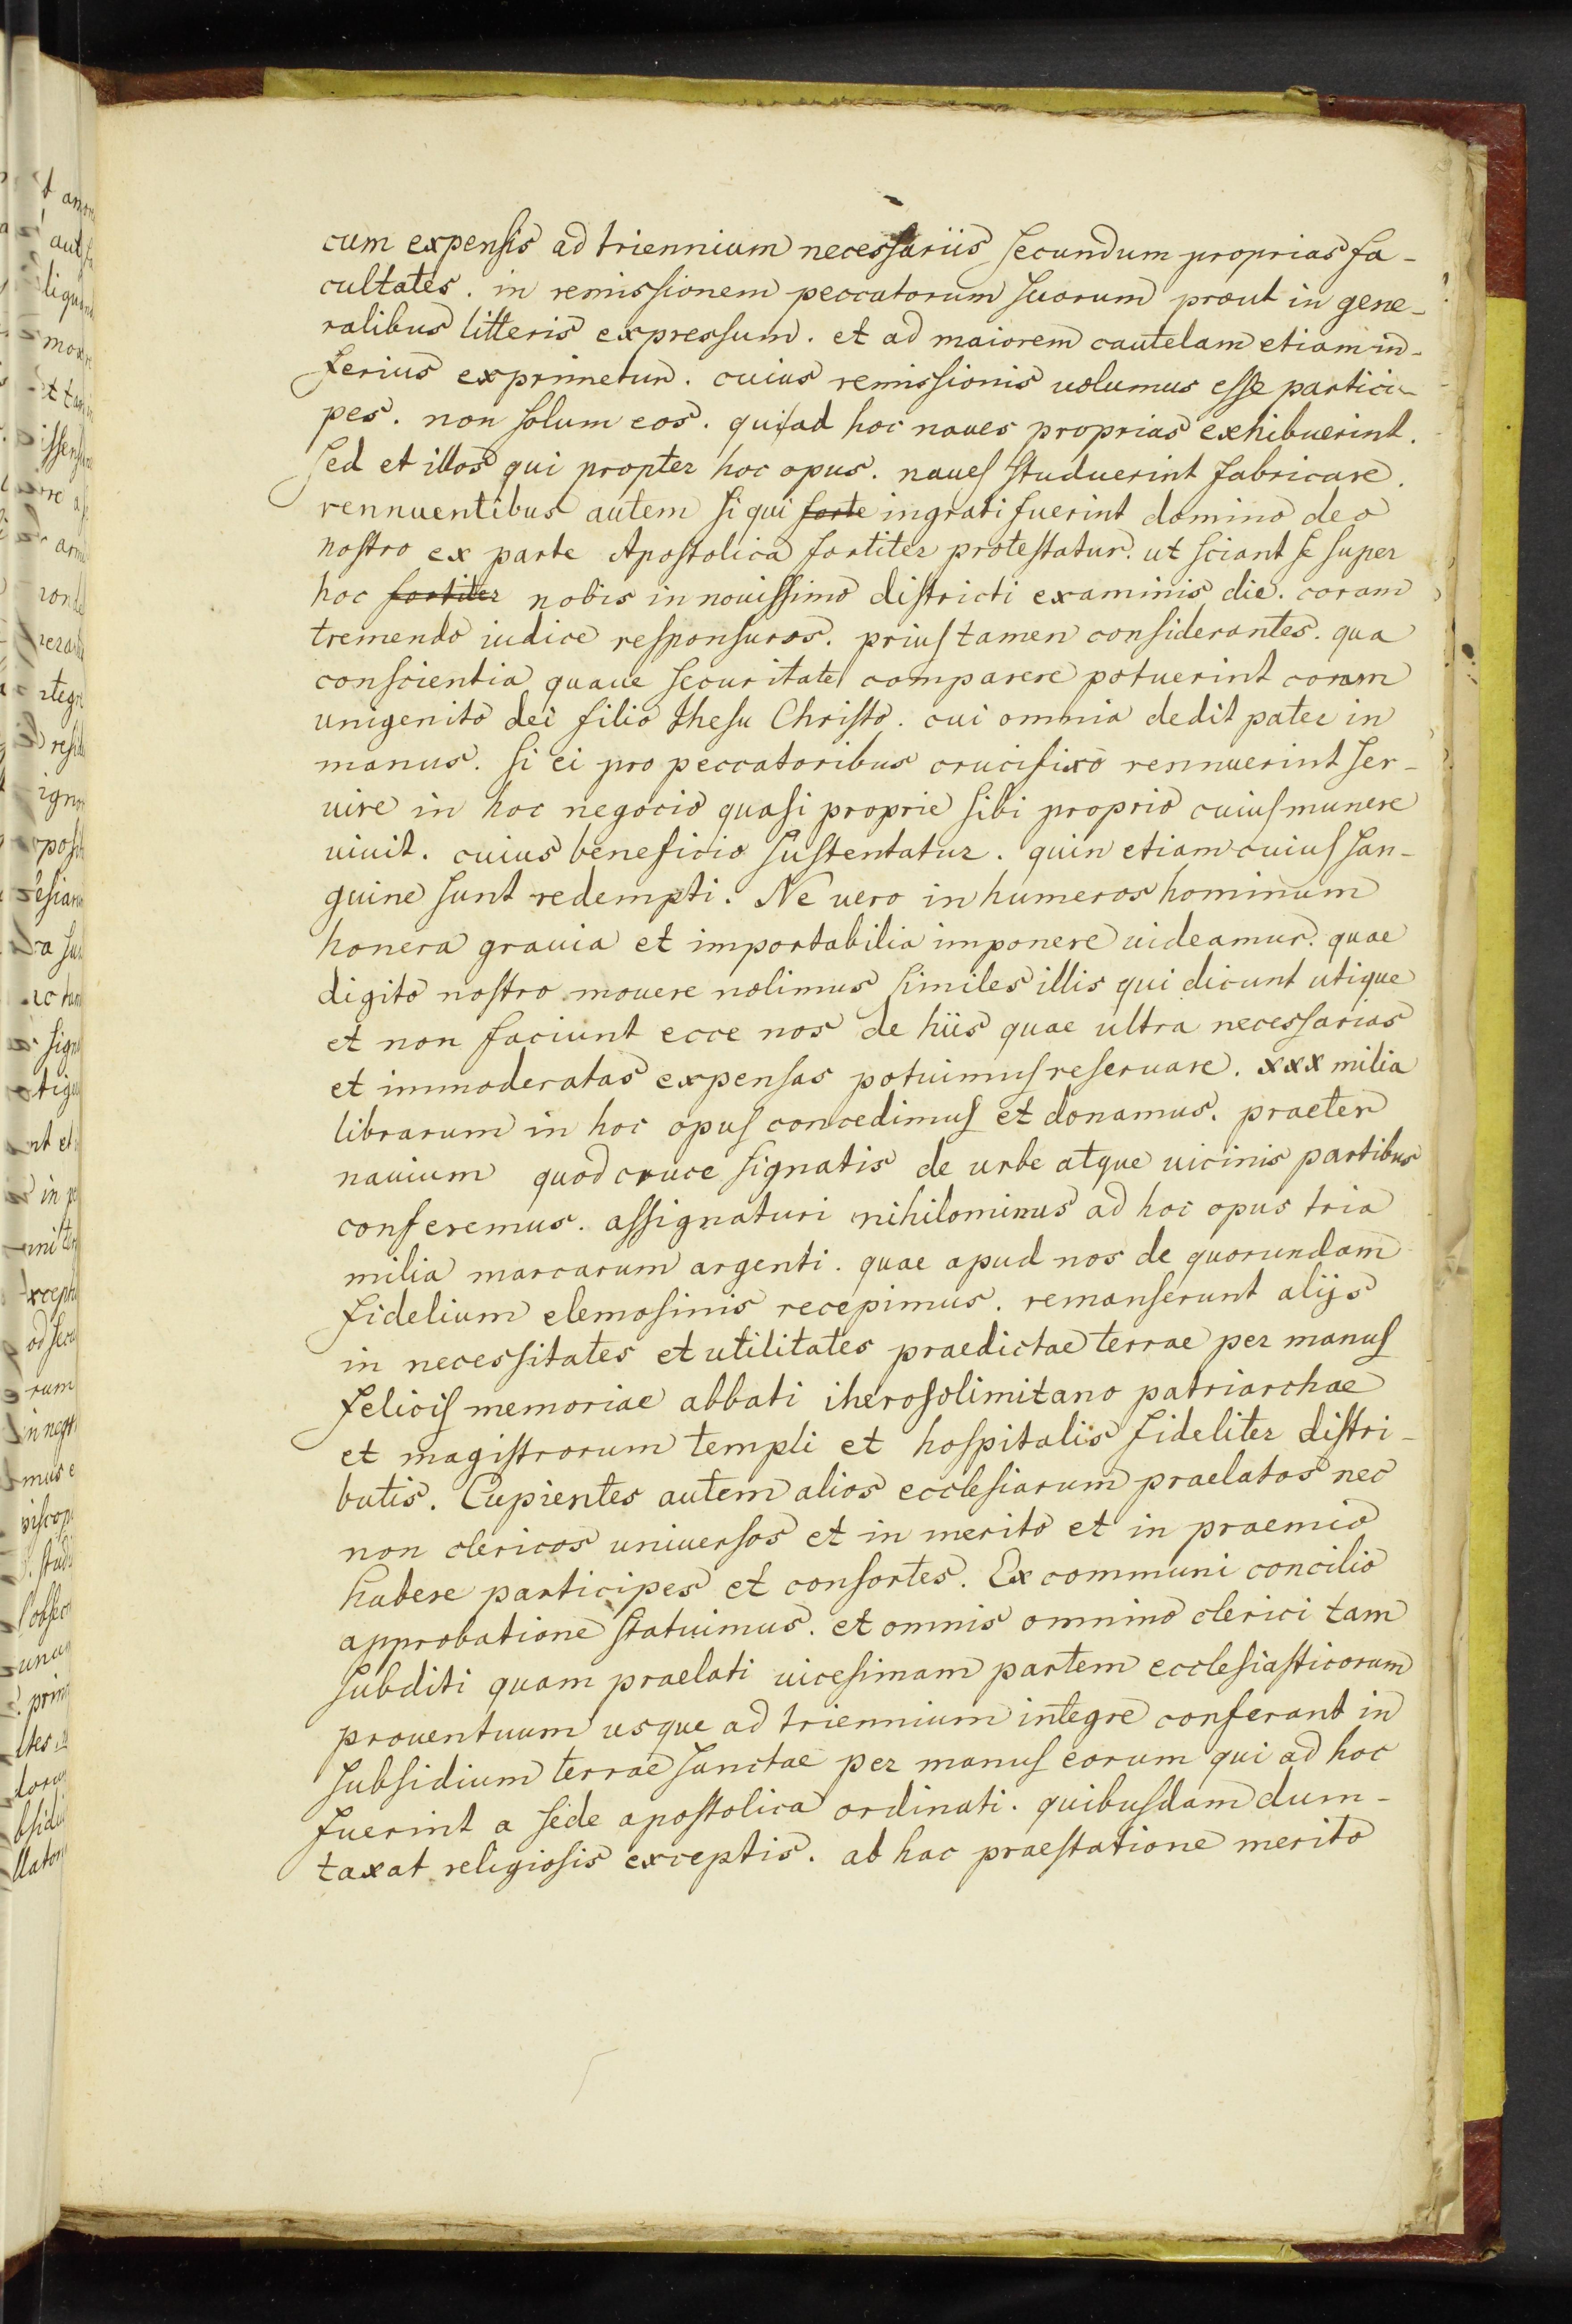 cum expensis ad triennium necessariis secundum proprias fa-
cultates. in remissionem peccatorum suorum prout in gene-
ralibus litteris expressum. et ad maiorem cautelam etiam in-
ferius exprimetur. cuius remissionis uolumus esse partici-
pes. non solum eos. qui ad hoc naues proprias exhibuerint.
sed et illos qui propter hoc opus. naues studuerint fabricare.
rennuentibus autem si qui forte ingrati fuerint domino deo
nostro ex parte Apostolica fortiter protestatur. ut sciant se super
hoc fortiter nobis in nouissimo districti examinis die. coram
tremendo iudice responsuros. prius tamen considerantes. qua
conscientia quaue securitate comparere potuerint coram
unigenito dei filio Ihesu Christo. cui omnia dedit pater in
manus. si ei pro peccatoribus crucifixo rennuerint ser-
uire in hoc negocio quasi proprie sibi proprio cuius munere
uiuit. cuius beneficio sustentatur. quin etiam cuius san-
guine sunt redempti. Ne uero in humeros hominum
honera grauia et importabilia imponere uideamur. quae
digito nostro mouere nolimus similes illis qui dicunt utique
et non faciunt ecce nos de hiis quae ultra necessarias
et immoderatas expensas potuimus reseruare. xxx milia
librarum in hoc opus concedimus et donamus. praeter
nauium quod cruce signatis de urbe atque uicinis partibus
conferemus. assignaturi nihilominus ad hoc opus tria
milia marcarum argenti. quae apud nos de quorundam
fidelium elemosinis recepimus. remanserunt alijs
in necessitates et utilitates praedictae terrae per manus
felicis memoriae abbati iherosolimitano patriarchae
et magistrorum templi et hospitalis fideliter distri-
butis. Cupientes autem alios ecclesiarum praelatos nec
non clericos uniuersos et in merito et in praemio
habere participes et consortes. Ex communi concilio
approbatione statuimus. et omnis omnino clerici tam
subditi quam praelati uicesimam partem ecclesiasticorum
prouentuum usque ad triennium integre conferant in
subsidium terrae sanctae per manus eorum qui ad hoc
fuerint a sede apostolica ordinati. quibusdam dum-
taxat religiosis exceptis. ab hac praestatione merito